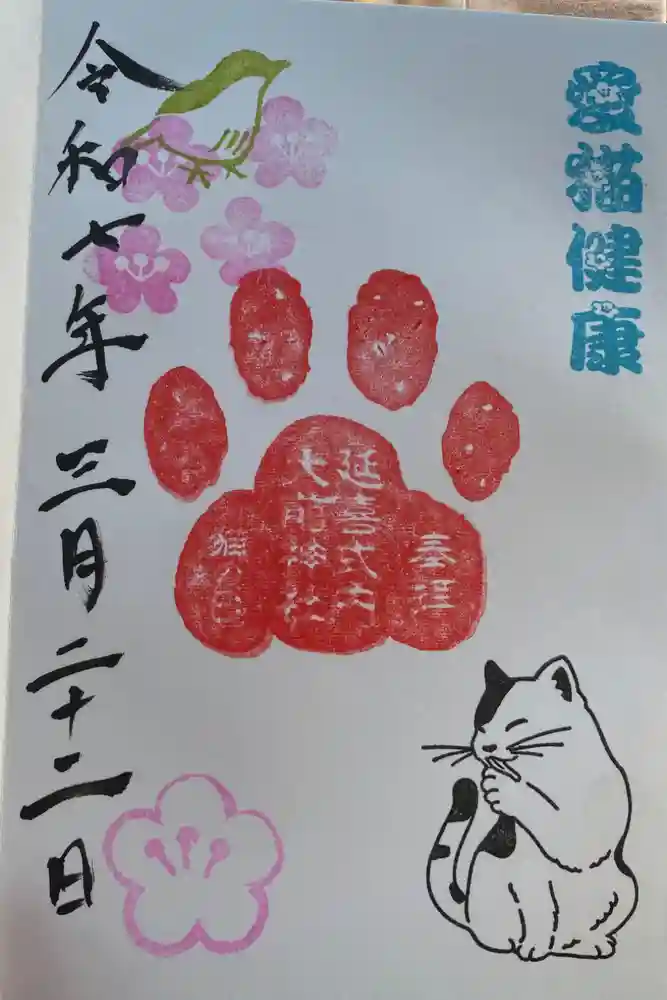 愛猫健康
奉拝
延喜式内
大前神社
令和七年 三月二十二日